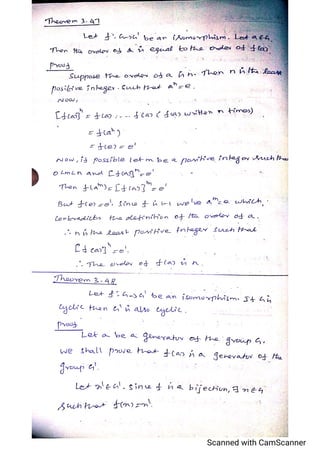 Theorem 3.47
Let f: G→G' be an isomorphism. Let a∈G.
Then the order of a is equal to the order of f(a)
Proof
Suppose the order of a is n. Then n is the least
positive integer. Such that aⁿ=e.
Now,
[f(a)]ⁿ = f(a) ..... f(a) (f(a) written n times)
= f(aⁿ)
= f(e) = e'
Now, if possible let m be a positive integer such that
0<m<n and [f(a)]ᵐ=e'
Then f(aᵐ)=[f(a)]ᵐ=e'
But f(e)=e'. Since f is 1-1 we've aᵐ=e which,
Contradicts the definition of the order of a.
∴ n is the least positive integer such that
[f(a)]ⁿ=e'.
∴ The order of f(a) is n.
Theorem 3.48
Let f: G→G' be an isomorphism. If G is
cyclic then G' is also cyclic.
Proof
Let a be a generator of the group G.
we shall prove that f(a) is a generator of the
group G'.
Let x'∈G'. Since f is a bijection, ∃ x∈G
such that f(x)=x'.
Scanned with CamScanner